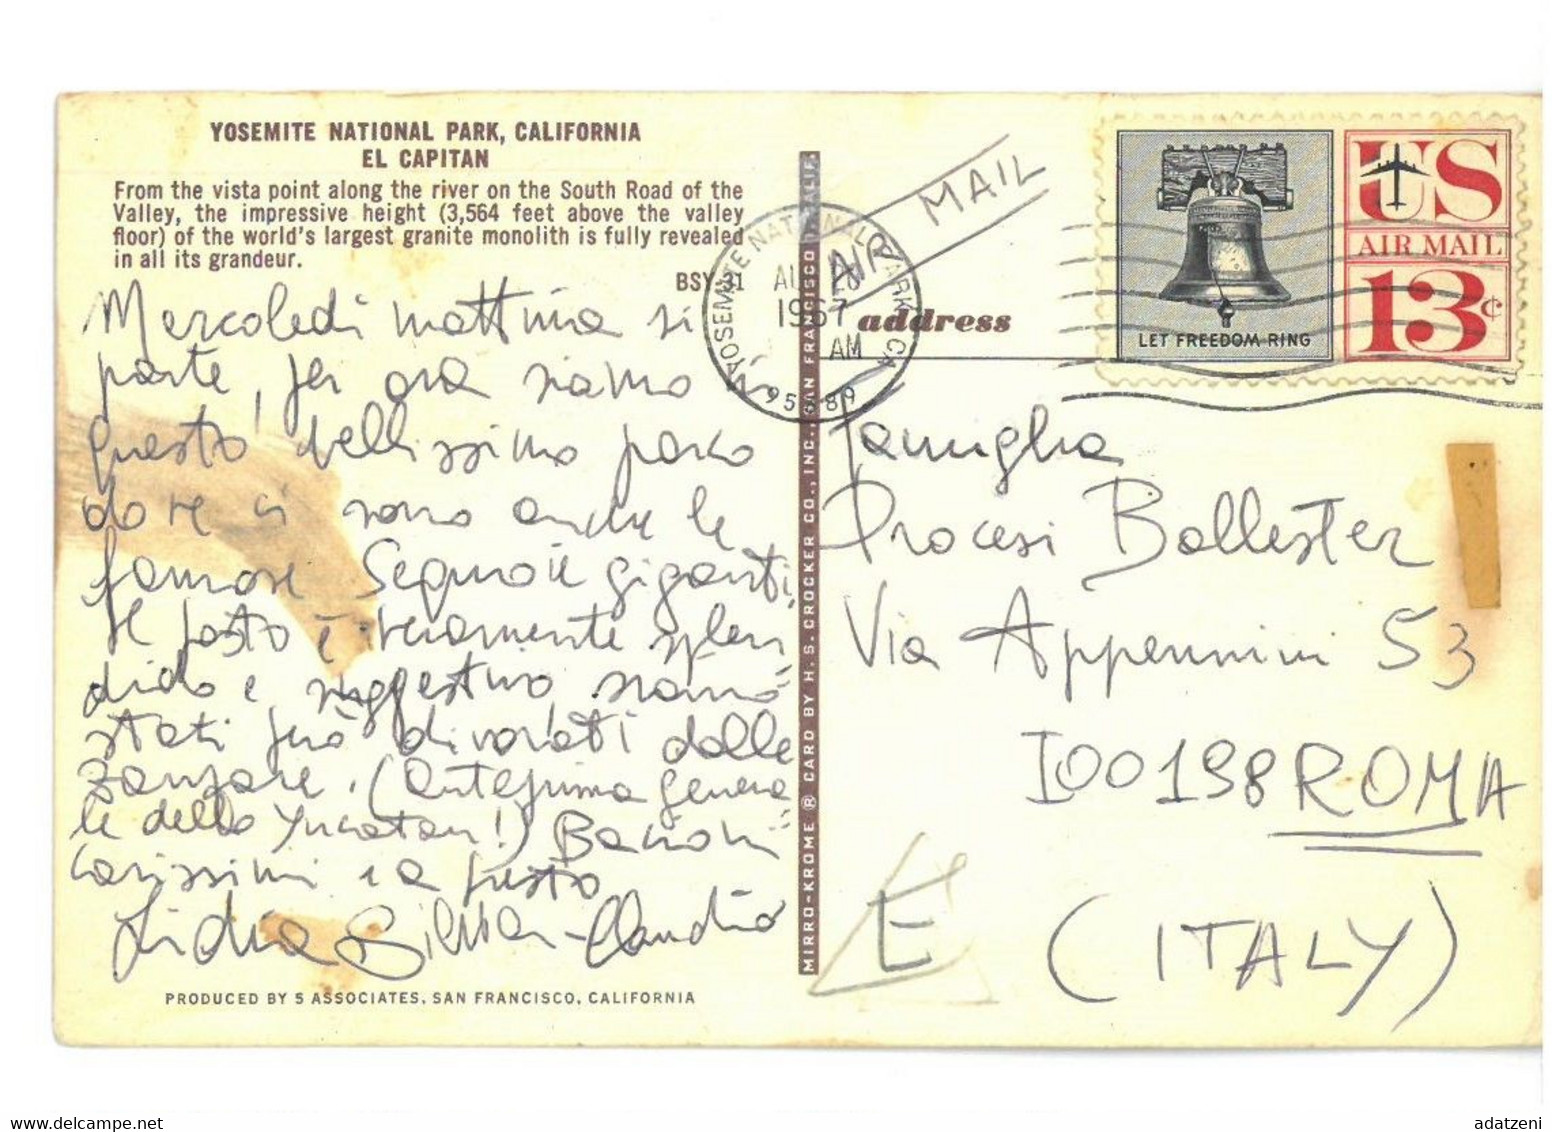 YOSEMITE NATIONAL PARK, CALIFORNIA
EL CAPITAN
From the vista point along the river on the South Road of the
Valley, the impressive height (3,564 feet above the valley
floor) of the world's largest granite monolith is fully revealed
in all its grandeur.
BSY-31
Mercoledì mattina si
parte, per ora siamo in
questo bellissimo parco
dove ci sono anche le
famose Sequoie giganti.
Il posto è veramente splen
dido e suggestivo siamo
stati però divorati dalle
zanzare. (Anteprima genera
le dello Yucatan!) Bacioni
carissimi e a presto
Lidia Silvia Claudio
PRODUCED BY 5 ASSOCIATES, SAN FRANCISCO, CALIFORNIA
MIRRO-KROME ® CARD BY H. S. CROCKER CO., INC., SAN FRANCISCO CALIF.
AIR MAIL
YOSEMITE NATIONAL PARK CA
AUG 28
1967
AM
95389
address
LET FREEDOM RING
US
AIR MAIL
13¢
Famiglia
Procesi Ballester
Via Appennini 53
I00198 ROMA
(ITALY)
E
www.delcampe.net
adatzeni